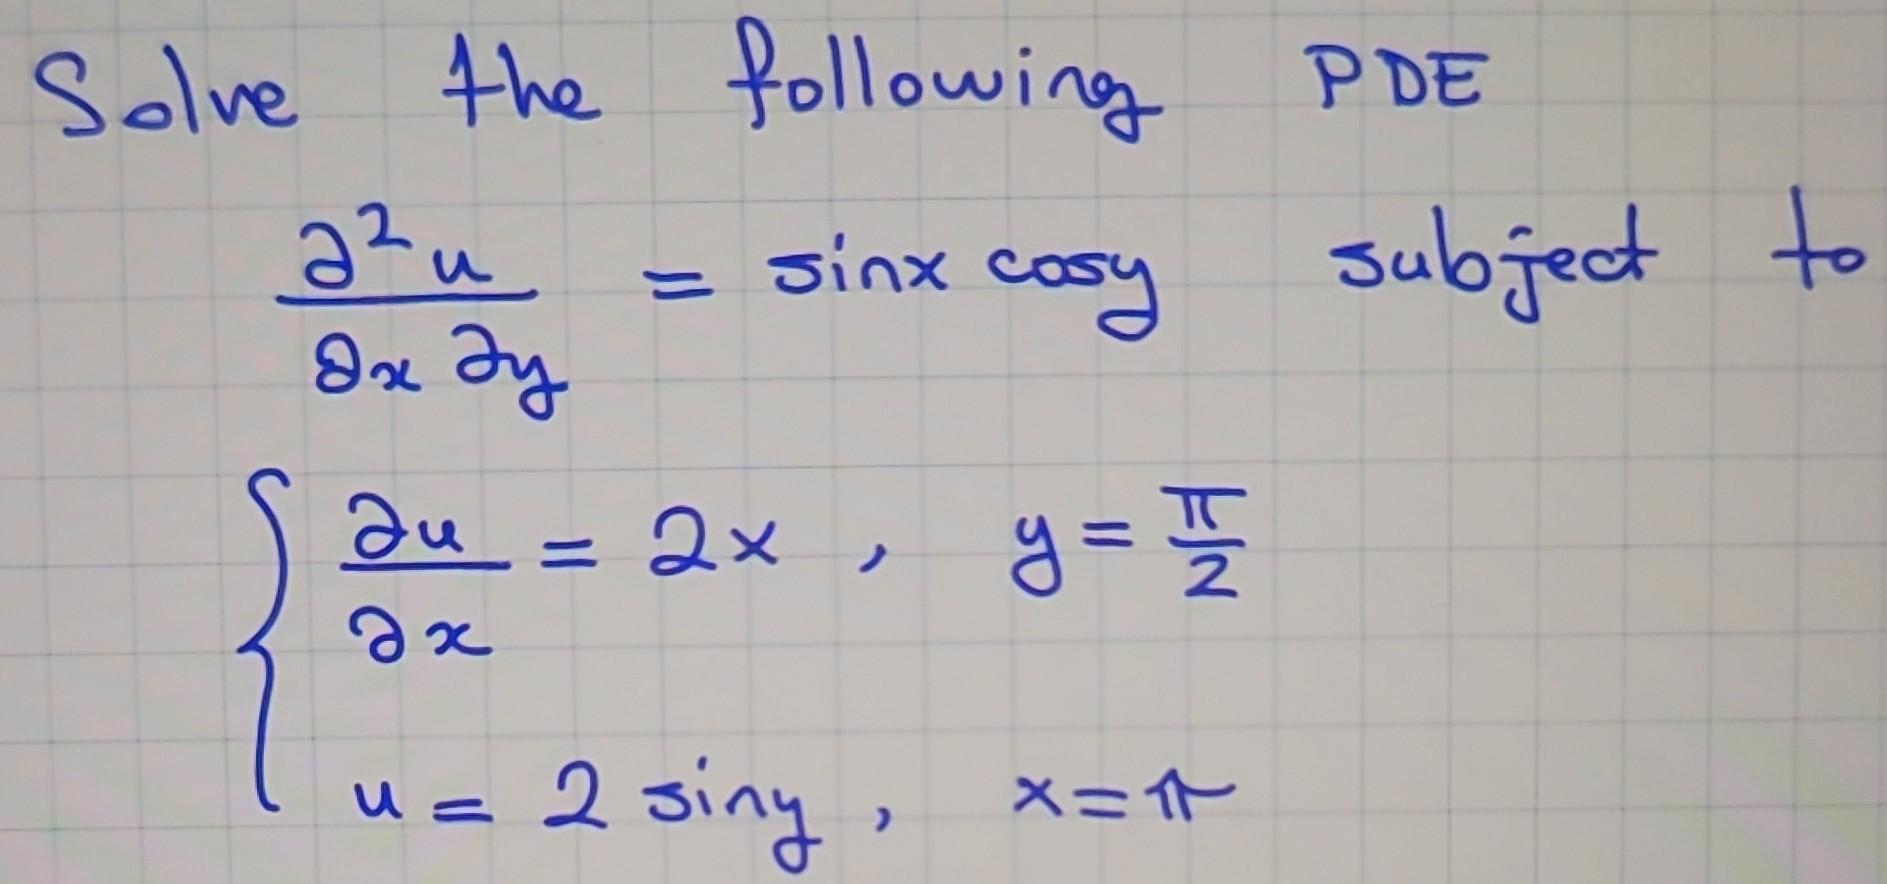 Solve the following PDE
∂²u/∂x ∂y = sinx cosy subject to
∂u/∂x = 2x, y = π/2
u = 2 siny, x = π